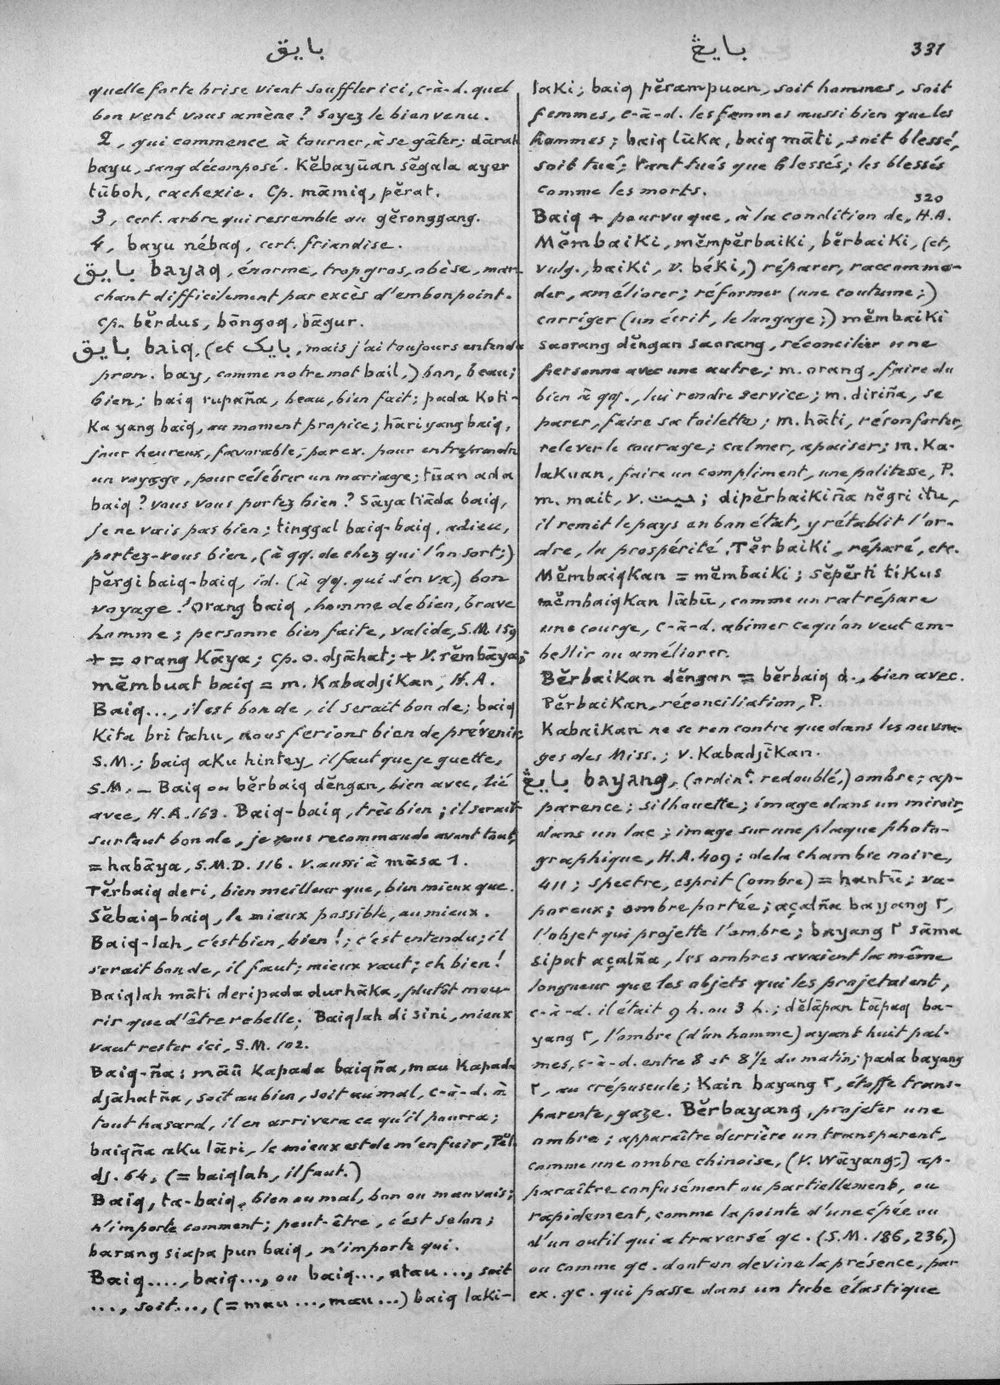 بايق
بايڠ
331
quelle forte brise vient souffler ici, c-à-d. quel
bon vent vous amène? Soyez le bienvenu.
2, qui commence à tourner, à se gâter; dārah
bayu, sang décomposé. Kĕbayūan sĕgala ayer
tūboh, cachexie. Cp. māmiq, pĕrat.
3, cert. arbre qui ressemble au gĕronggang.
4, bayu nébaq, cert. friandise.
بايق bayaq, énorme, trop gros, obèse, mar-
chant difficilement par excès d'embonpoint.
cp. bĕrdus, bōngoq, bāgur.
بايق baiq, (et بايک, mais j'ai toujours entendu
pron. bay, comme notre mot bail,) bon, beau;
bien; baiq rupaña, beau, bien fait; pada Koti-
Ka yang baiq, au moment propice; hāri yang baiq,
jour heureux, favorable, par ex. pour entreprendre
un voyage, pour célébrer un mariage; tūan ada
baiq? vous vous portez bien? Sāya tiāda baiq,
je ne vais pas bien; tinggal baiq-baiq, adieu,
portez-vous bien, (à qq. de chez qui l'on sort;)
pĕrgi baiq-baiq, id. (à qq. qui s'en va,) bon
voyage! Orang baiq, homme de bien, brave
homme; personne bien faite, valide, S.M. 159
+ = orang Kāya; cp. o. djāhat; + v. rĕmbāya;
mĕmbuat baiq = m. KabadjiKan, H.A.
Baiq..., il est bon de, il serait bon de; baiq
Kita bri tahu, nous ferions bien de prévenir,
S.M.; baiq aKu hintey, il faut que je guette,
S.M. — Baiq ou bĕrbaiq dĕngan, bien avec, lié
avec, H.A. 163. Baiq-baiq, très bien; il serait
surtout bon de, je vous recommande avant tout,
= habāya, S.M.D. 116. v. aussi à māsa 1.
Tĕrbaiq deri, bien meilleur que, bien mieux que.
Sĕbaiq-baiq, le mieux possible, au mieux.
Baiq-lah, c'est bien, bien!; c'est entendu; il
serait bon de, il faut; mieux vaut; eh bien!
Baiqlah māti deripada durhāka, plutôt mou-
rir que d'être rebelle; Baiqlah di sini, mieux
vaut rester ici, S.M. 102.
Baiq-ña: māū Kapada baiqña, mau Kapada
djāhatña, soit au bien, soit au mal, c-à-d. à
tout hasard, il en arrivera ce qu'il pourra;
baiqña aKu lāri, le mieux est de m'enfuir, Pĕl.
dj. 64, (= baiqlah, il faut.)
Baiq, ta-baiq, bien ou mal, bon ou mauvais;
n'importe comment; peut-être, c'est selon;
barang siapa pun baiq, n'importe qui.
Baiq...., baiq..., ou baiq..., atau ..., soit
..., soit..., (= mau ..., mau ...) baiq laki-
laKi; baiq pĕrampuan, soit hommes, soit
femmes, c-à-d. les femmes aussi bien que les
hommes; baiq lūka, baiq māti, soit blessé,
soit tué; tant tués que blessés; les blessés
comme les morts.
320
Baiq + pourvu que, à la condition de, H.A.
MĕmbaiKi, mĕmpĕrbaiKi, bĕrbaiKi, (et,
vulg., baiKi, v. béKi,) réparer, raccommo-
der, améliorer; réformer (une coutume;)
corriger (un écrit, le langage;) mĕmbaiKi
saorang dĕngan saorang, réconcilier une
personne avec une autre; m. orang, faire du
bien à qq., lui rendre service; m. diriña, se
parer, faire sa toilette; m. hāti, réconforter,
relever le courage; calmer, apaiser; m. Ka-
laKuan, faire un compliment, une politesse, P.
m. mait, v. ميت; dipĕrbaiKiña nĕgri itu,
il remit le pays en bon état, y rétablit l'or-
dre, la prospérité. TĕrbaiKi, réparé, etc.
MĕmbaiqKan = mĕmbaiKi; sĕpĕrti tiKus
mĕmbaiqKan lābū, comme un rat répare
une courge, c-à-d. abîmer ce qu'on veut em-
bellir ou améliorer.
BĕrbaiKan dĕngan = bĕrbaiq d., bien avec.
PĕrbaiKan, réconciliation, P.
KabaiKan ne se rencontre que dans les ouvra-
ges des Miss.; v. KabadjiKan.
بايڠ bayang, (ordint. redoublé,) ombre; ap-
parence; silhouette; image dans un miroir,
dans un lac; image sur une plaque photo-
graphique, H.A. 409; de la chambre noire,
411; spectre, esprit (ombre) = hantū; va-
poreux; ombre portée; açalña bayang ٢,
l'objet qui projette l'ombre; bayang ٢ sāma
sipat açalña, les ombres avaient la même
longueur que les objets qui les projetaient,
c-à-d. il était 9 h. ou 3 h.; dĕlāpan tāpaq ba-
yang ٢, l'ombre (d'un homme) ayant huit pal-
mes, c-à-d. entre 8 et 8½ du matin; pada bayang
٢, au crépuscule; Kain bayang ٢, étoffe trans-
parente, gaze. Bĕrbayang, projeter une
ombre; apparaître derrière un transparent,
comme une ombre chinoise, (v. Wāyang;) ap-
paraître confusément ou partiellement, ou
rapidement, comme la pointe d'une épée ou
d'un outil qui a traversé qc. (S.M. 186, 236,)
ou comme qc. dont on devine la présence, par
ex. qc. qui passe dans un tube élastique